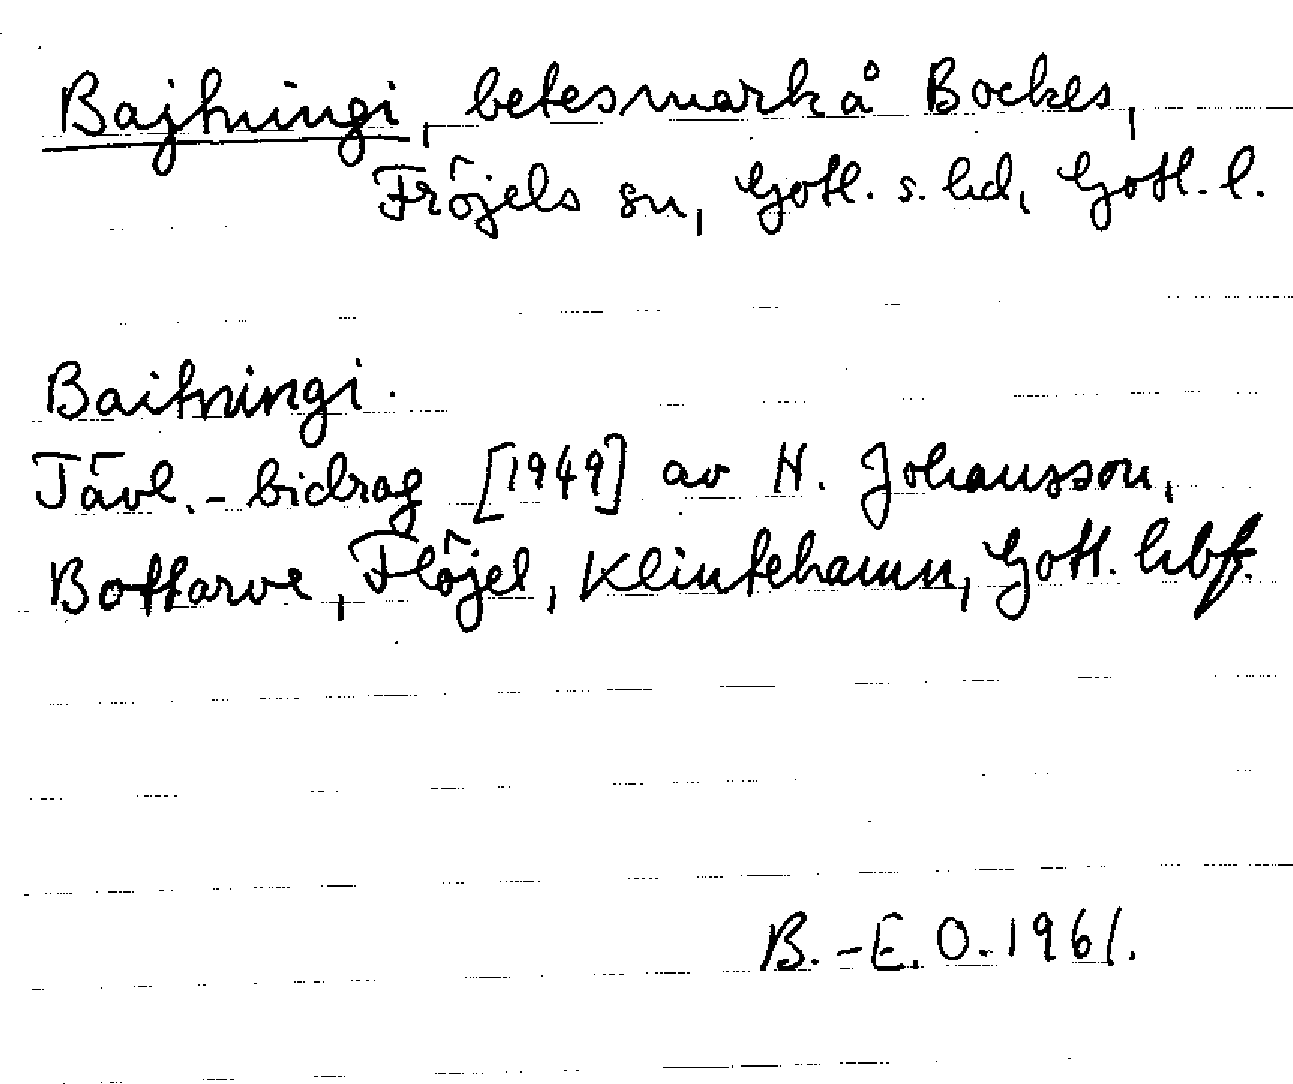 Bajtningi, betesmark å Bockes,
Fröjels sn, Gotl. s. hd, Gotl. l.
Baitningi.
Tävl.-bidrag [1949] av H. Johansson,
Bottarve, Flöjel, Klintehamn, Gotl. hbf.
B.-E. O. 1961.